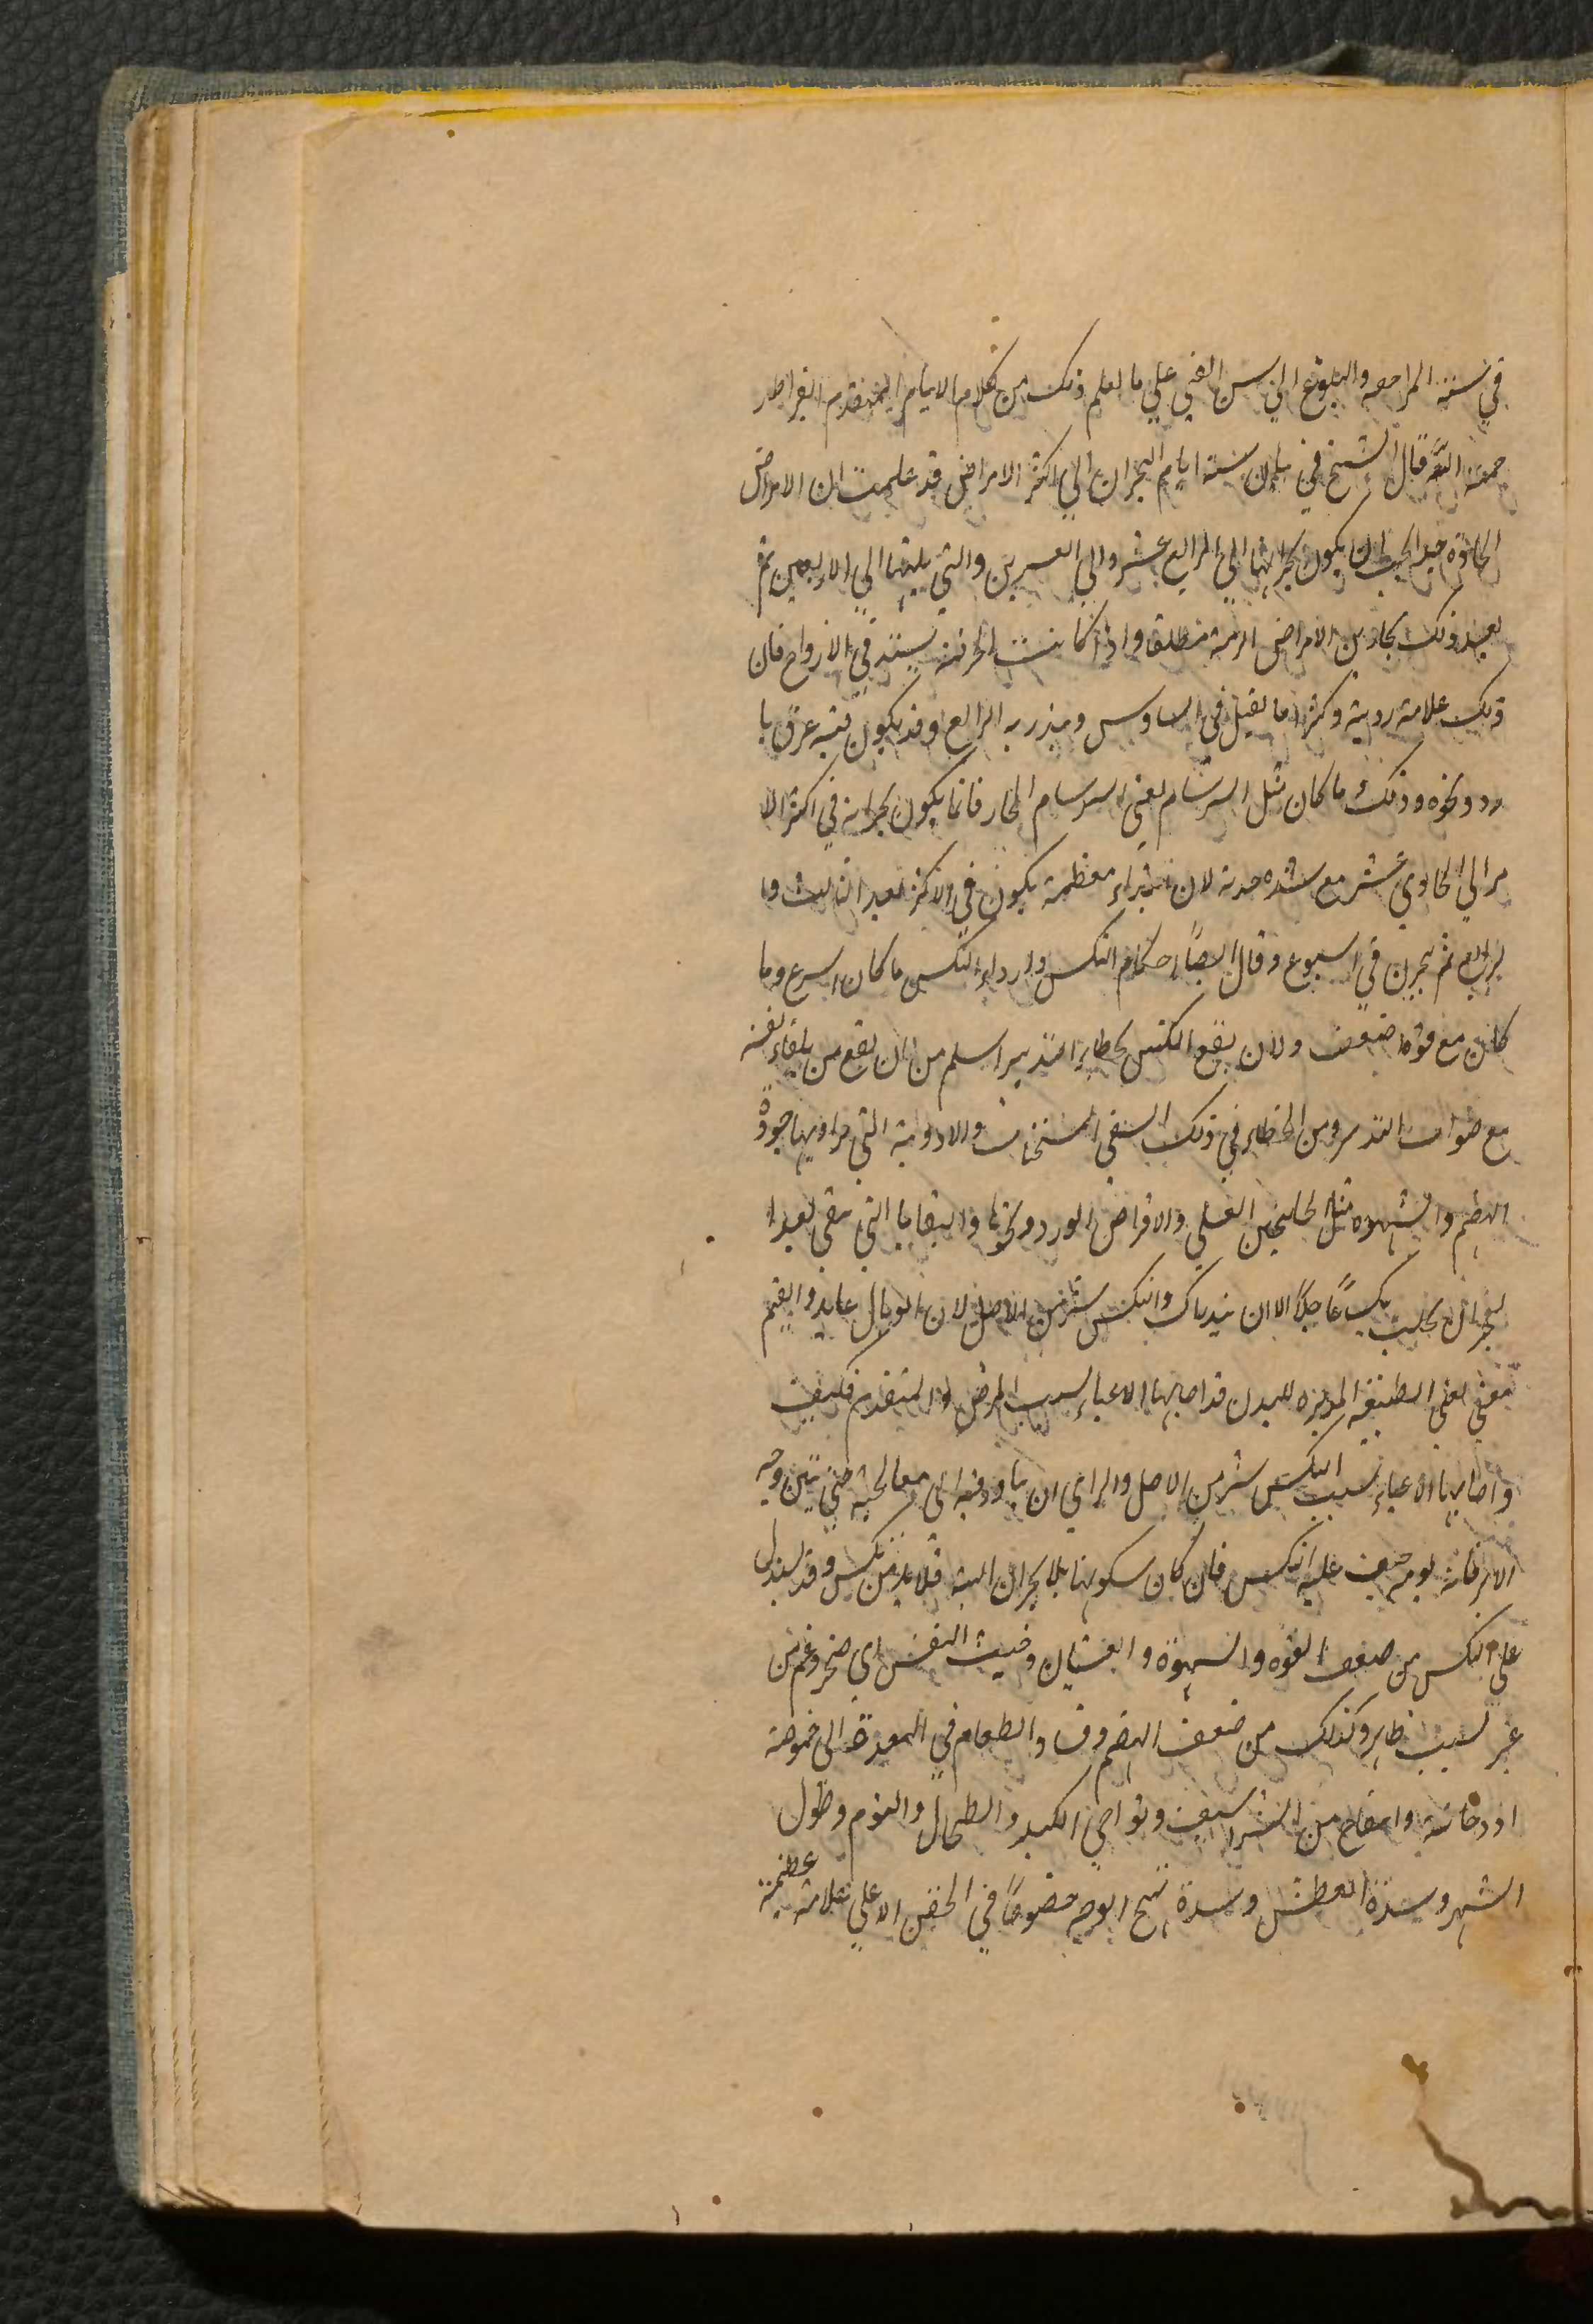 في سنة المراهقه والبلوغ الي سن الفتي علي ما لعلم ذلك من كلام الامام المتقدم البقراط ر
حمه الله قال الشيخ في بيان نسبة ايام البحران الي اكثر الامراض قد علمت ان الامراض
الحادة جدا يجب ان يكون بحرانها الي الرابع عشر والي العشرين والتي يليها الي الاربعين ثم
بعد ذلك بحارين الامراض المزمنة مطلقا واذا كانت المحرقة يشتد في الازواج فان
ذلك علامة ردية وكثيرا ما يقتل في السادس وينذر به الرابع وقد يكون فيه عرق با
رد ونحوه وذلك ما كان مثل السرسام يعني السرسام الحار فانما يكون بحرانه في اكثر الا
مر الي الحادي عشر مع شدة حدته لان ابتداء معظمه يكون في الاكثر بعد الثالث وا
لرابع ثم يبحرن في اسبوع وقال ايضاً احكام النكس واردا النكس ما كان اسرع وما
كان مع قوة اضعف ولان يقع النكس بخطاء التدبير اسلم من ان يقع من تلقاء نفسه
مع صواب التدبير ومن الخطاء في ذلك السقي المسخنات والادوية التي يراد بها جودة
الهضم والشهوه مثل الجلنجبين العسلي والاقراص الورد ونحوها والبقايا التي يبقي بعد ا
لبحران يجلب نكساً عاجلاً الا ان يتدارك والنكس شر من الاصل لان الوبال عايد والقيم
معني يعني الطبيعة المدبره للبدن قد اصابها الاعياء بسبب المرض المتقدم فكيف
واصابها الاعياء بسبب النكس شر من الاصل والراي ان يا ودفه الي معالجته حتي يتبين وجه
الامر فانه يومه خيف عليه النكس فان كان سكونها بلا بحران البتة فلا بد من نكس وقد يستدل
علي النكس من ضعف القوه والشهوة والغشيان وخبث النفس اي ضجر وغم من
غير سبب ظاهر وكذلك من ضعف الهضم وفساد الطعام في المعدة الي حموضة
او دخانية وانتفاخ من الشراسيف ونواحي الكبد والطحال والنوم وطول
السهر وشدة العطش وشدة تهيج الوجه خصوصاً في الجفن الاعلي علامة عظيمة